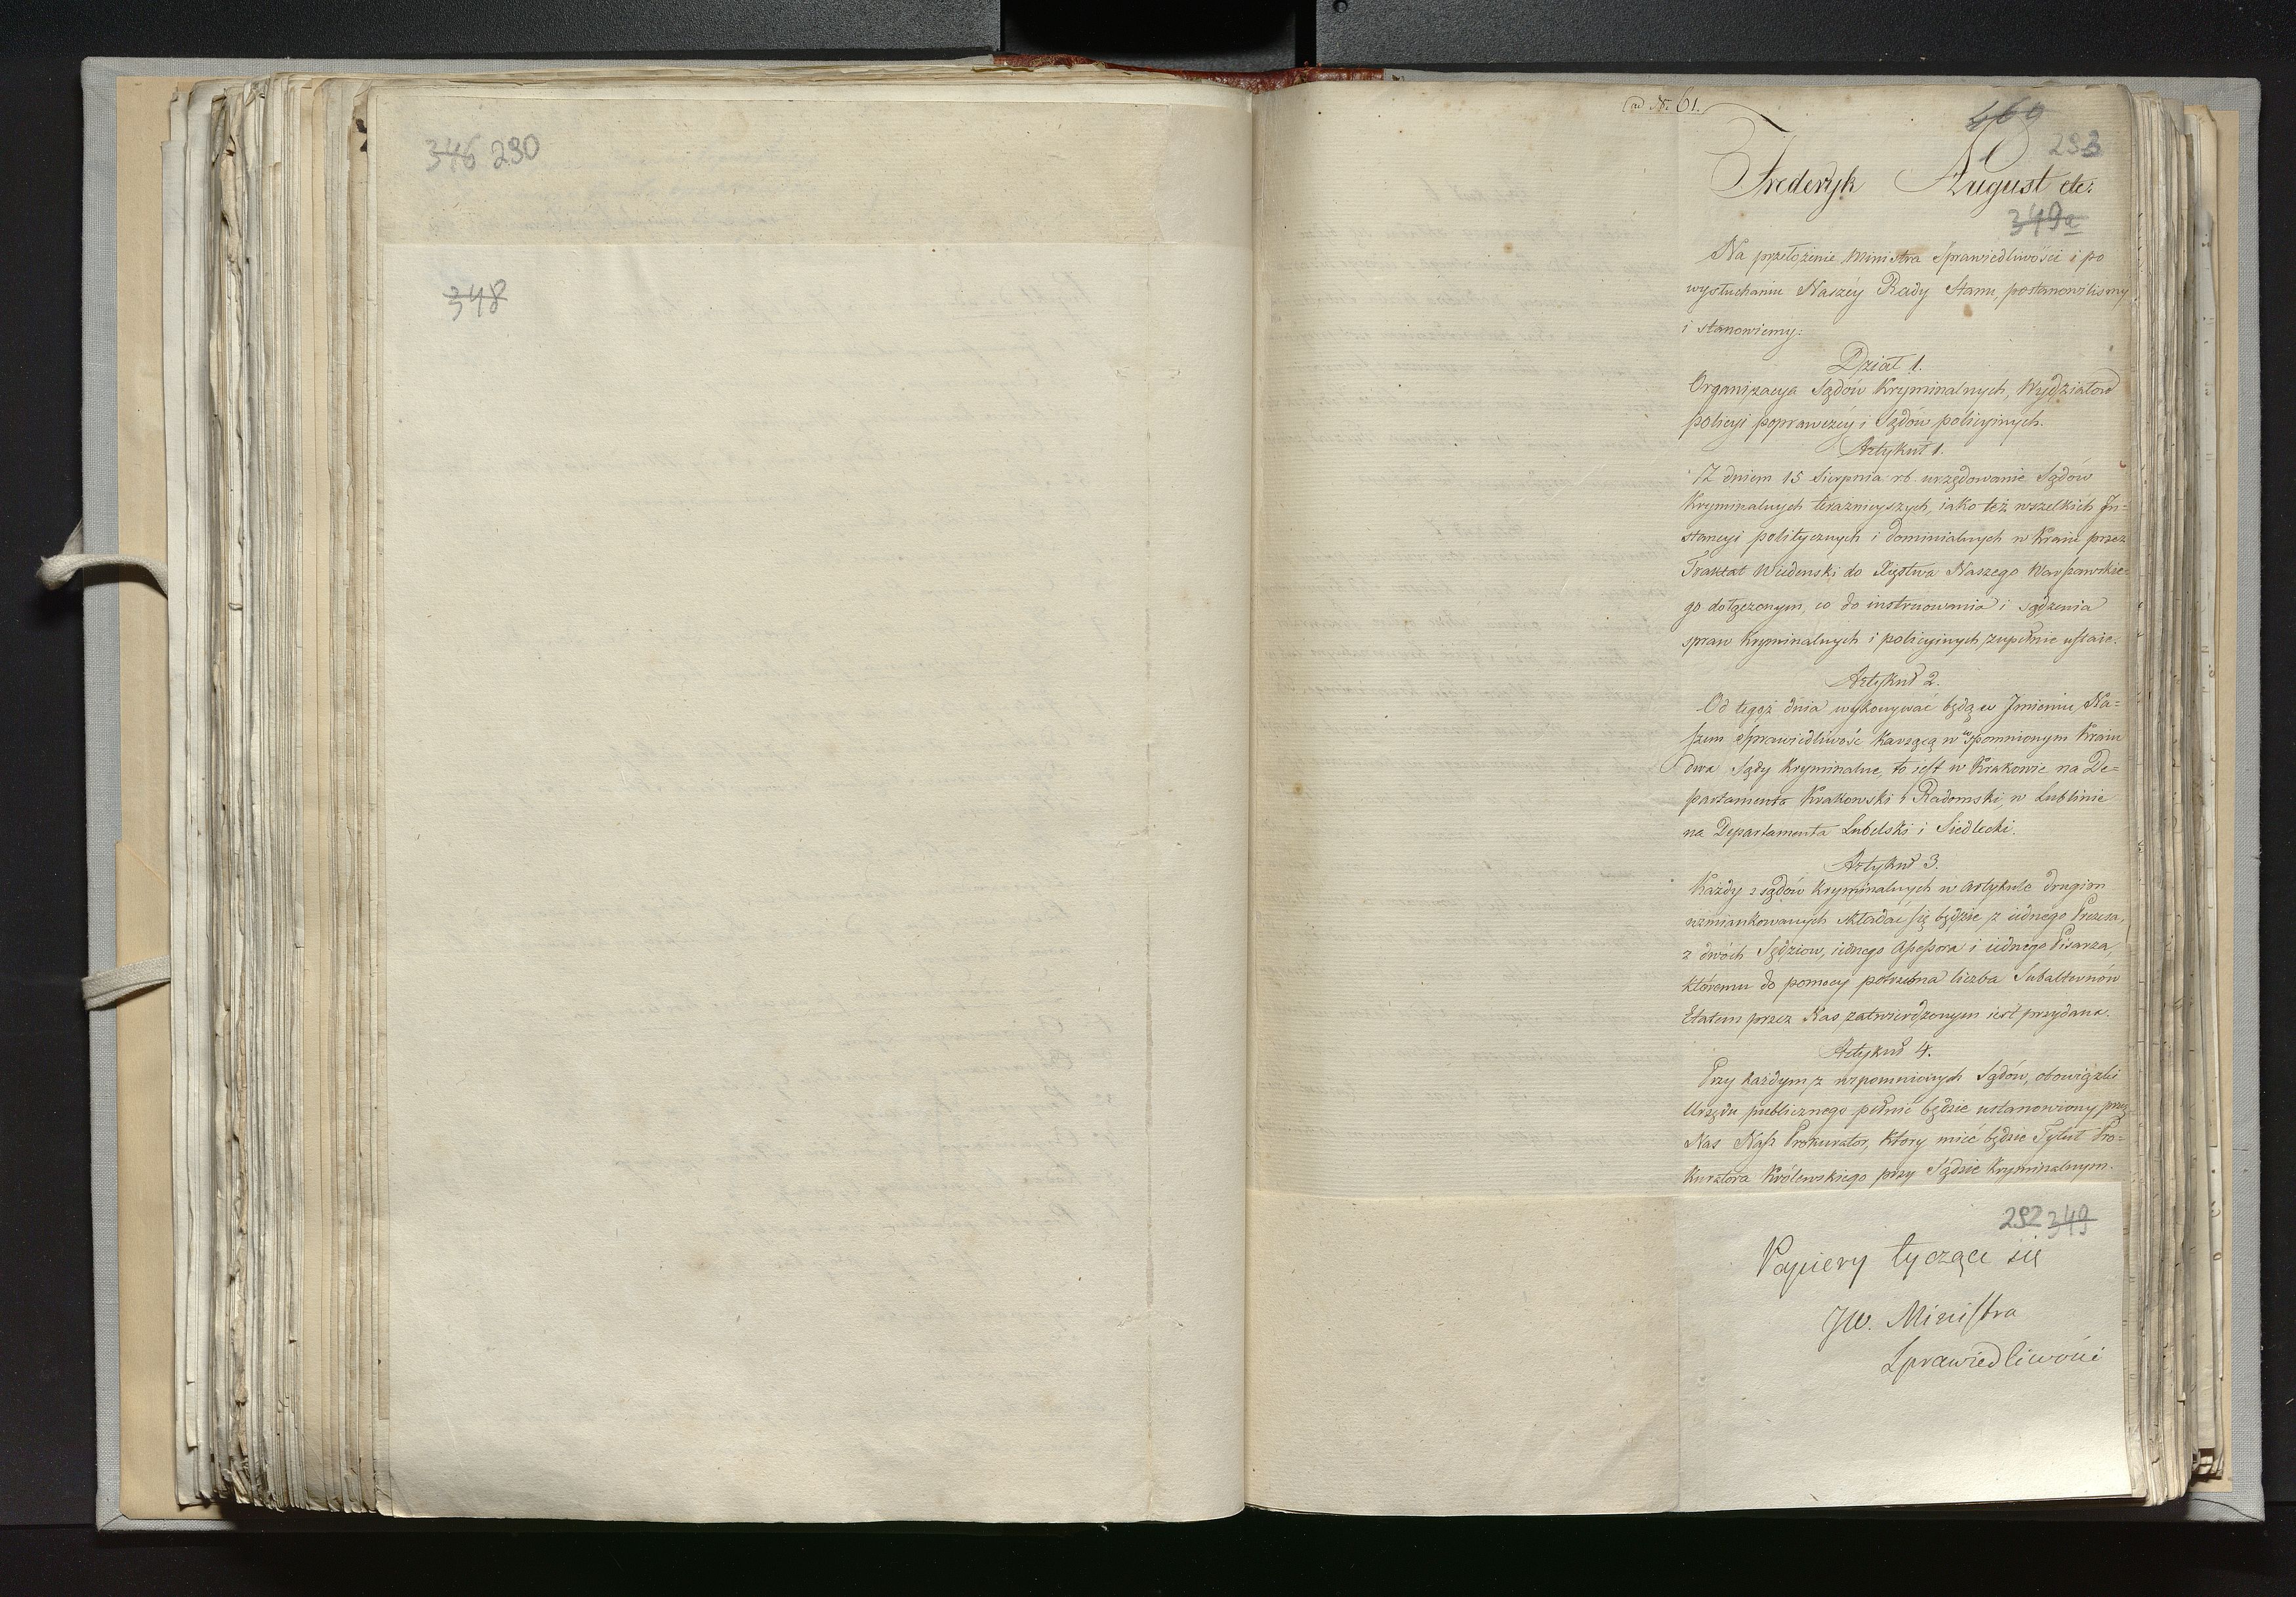 346 290
348
ad N. 61.
469
293
Frederyk August etc:
349a
Na przełożenie Ministra Sprawiedliwości i po
wysłuchaniu Naszey Rady Stanu, postanowiliśmy
i stanowiemy:
Dział 1.
Organizacya Sądów Kryminalnych, Wydziałow
policyi poprawczéy i Sądów policyinych.
Artykuł 1.
Z dniem 15 Sierpnia r.b. urzędowanie Sądów
Kryminalnych teraznieyszych, iako też wszelkich In=
stancyi politycznych i dominialnych w Kraiu przez
Traktat Wiedenski do Xięstwa Naszego Warszawskie=
go dołączonym, co do instruowania i sądzenia
spraw Kryminalnych i policyinych, zupełnie ustaie.
Artykuł 2.
Od tegoż dnia wykonywać będą w Imieniu Na=
szem Sprawiedliwość Karzącą w wspomnionym Kraiu
dwa Sądy Kryminalne, to iest w Krakowie na De=
partamenta Krakowski i Radomski, w Lublinie
na Departamenta Lubelski i Siedlecki.
Artykuł 3.
Każdy z sądów Kryminalnych w artykule drugim
wzmiankowanych składać się będzie z iednego Prezesa,
z dwóch Sędziow, iednego Assessora i iednego Pisarza,
któremu do pomocy potrzebna liczba Subalternów
Etatem przez Nas zatwierdzonym iest przydana.
Artykuł 4.
Przy każdym z wspomnionych Sądów, obowiązki
Urzędu publicznego pełnić będzie ustanowiony przez
Nas Nasz Prokurator, który mieć będzie Tytuł Pro=
kuratora Królewskiego przy Sądzie Kryminalnym.
292 349
Papiery tyczące się
JW. Ministra
Sprawiedliwości